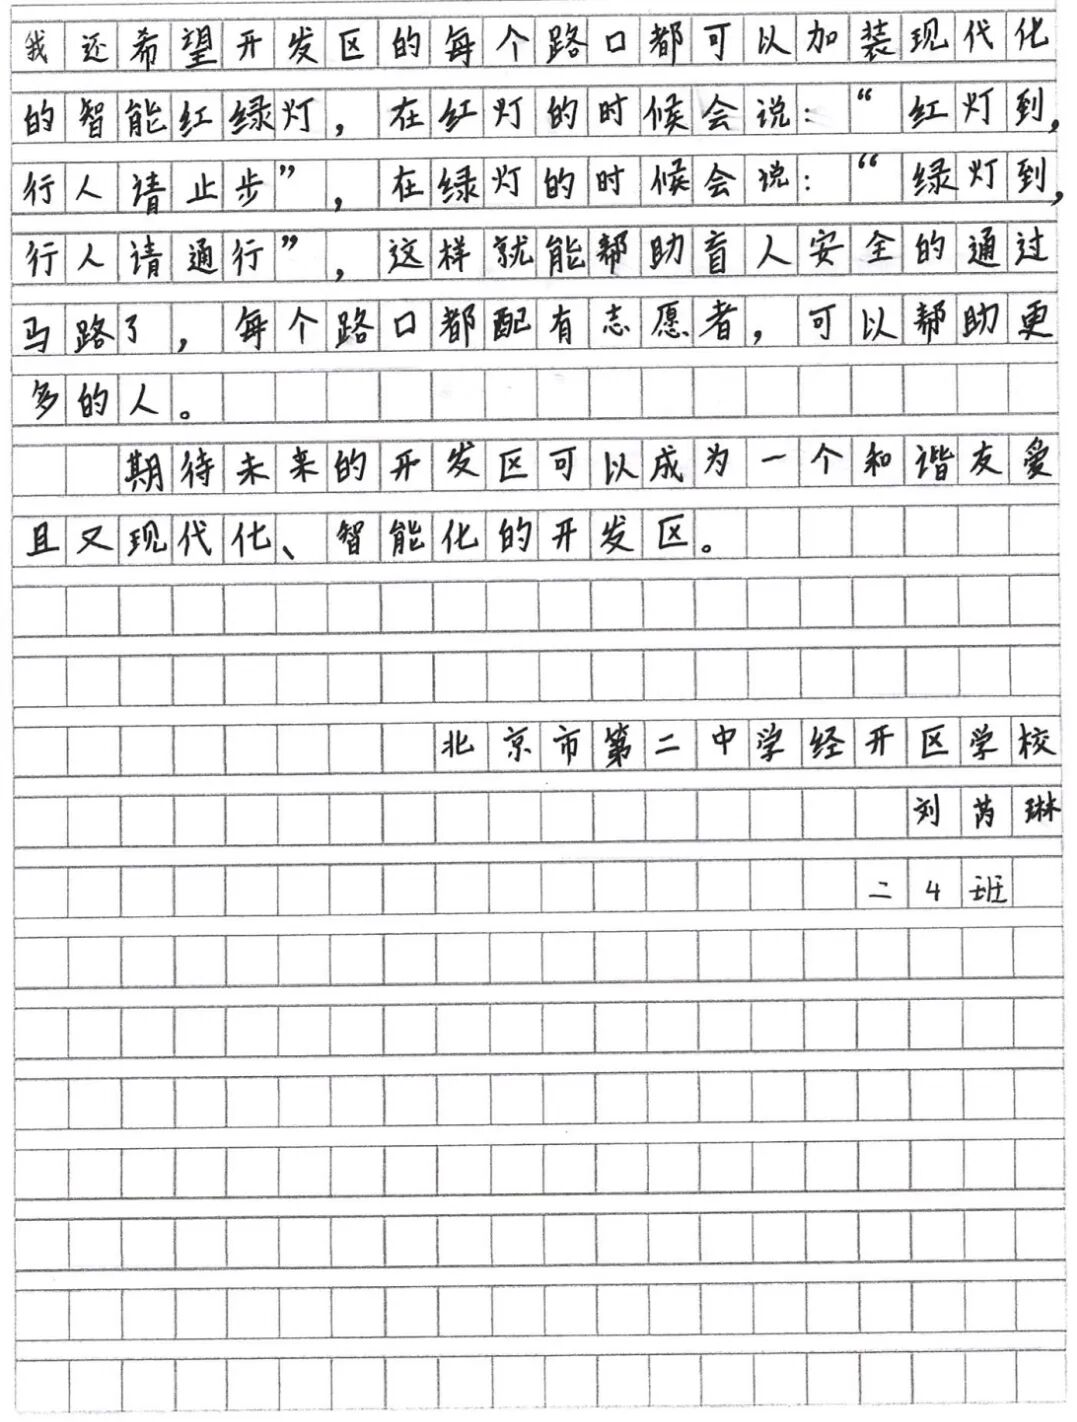 我还希望开发区的每个路口都可以加装现代化
的智能红绿灯，在红灯的时候会说：“红灯到，
行人请止步”，在绿灯的时候会说：“绿灯到，
行人请通行”，这样就能帮助盲人安全的通过
马路了，每个路口都配有志愿者，可以帮助更
多的人。
期待未来的开发区可以成为一个和谐友爱
且又现代化、智能化的开发区。
北京市第二中学经开区学校
刘芮琳
二4班